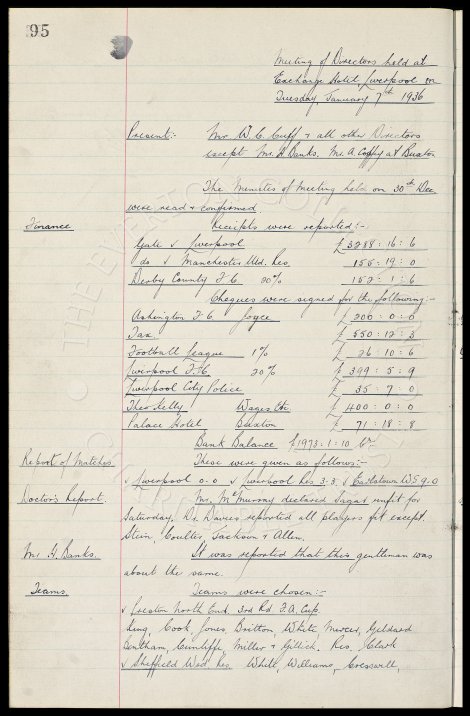 95
Meeting of Directors held at
Exchange Hotel Liverpool on
Tuesday January 7th 1936
Present:- Mr W. C. Cuff & all other Directors
except Mr. H. Banks. Mr. A Coffey at Buxton
The Minutes of Meeting held on 30th Dec
were read & confirmed.
Finance Receipts were reported:-
Gate v Liverpool £3288 : 16 : 6
do v Manchester Utd. Res. 155 : 19 : 0
Derby County F.C. 20% 152 : 1 : 6
Cheques were signed for the following:-
Ashington F.C. Joyce £ 200 : 0 : 0
Tax. £ 550 : 12 : 3
Football League 1% £ 26 : 10 : 6
Liverpool F.C. 20% £ 399 : 5 : 9
Liverpool City Police £ 35 : 7 : 0
Theo Kelly Wages Etc. £ 400 : 0 : 0
Palace Hotel Buxton £ 71 : 18 : 8
Bank Balance £1973 : 1 : 10
Report of Matches These were given as follows:-
v Liverpool 0.0 v Liverpool Res 3.3. v Earlestown W S 9.0
Doctor's Report. Mr. McMurray declared Sagar unfit for
Saturday. Dr. Davies reported all players fit except
Stein, Coulter, Jackson & Allen.
Mr H. Banks. It was reported that this gentleman was
about the same.
Teams. Teams were chosen:-
v Preston North End 3rd Rd F.A. Cup.
King, Cook Jones, Britton, White, Mercer, Geldard
Bentham, Cunliffe, Miller & Gillick. Res. Clark
v Sheffield Wed Res. White, Williams, Cresswell,